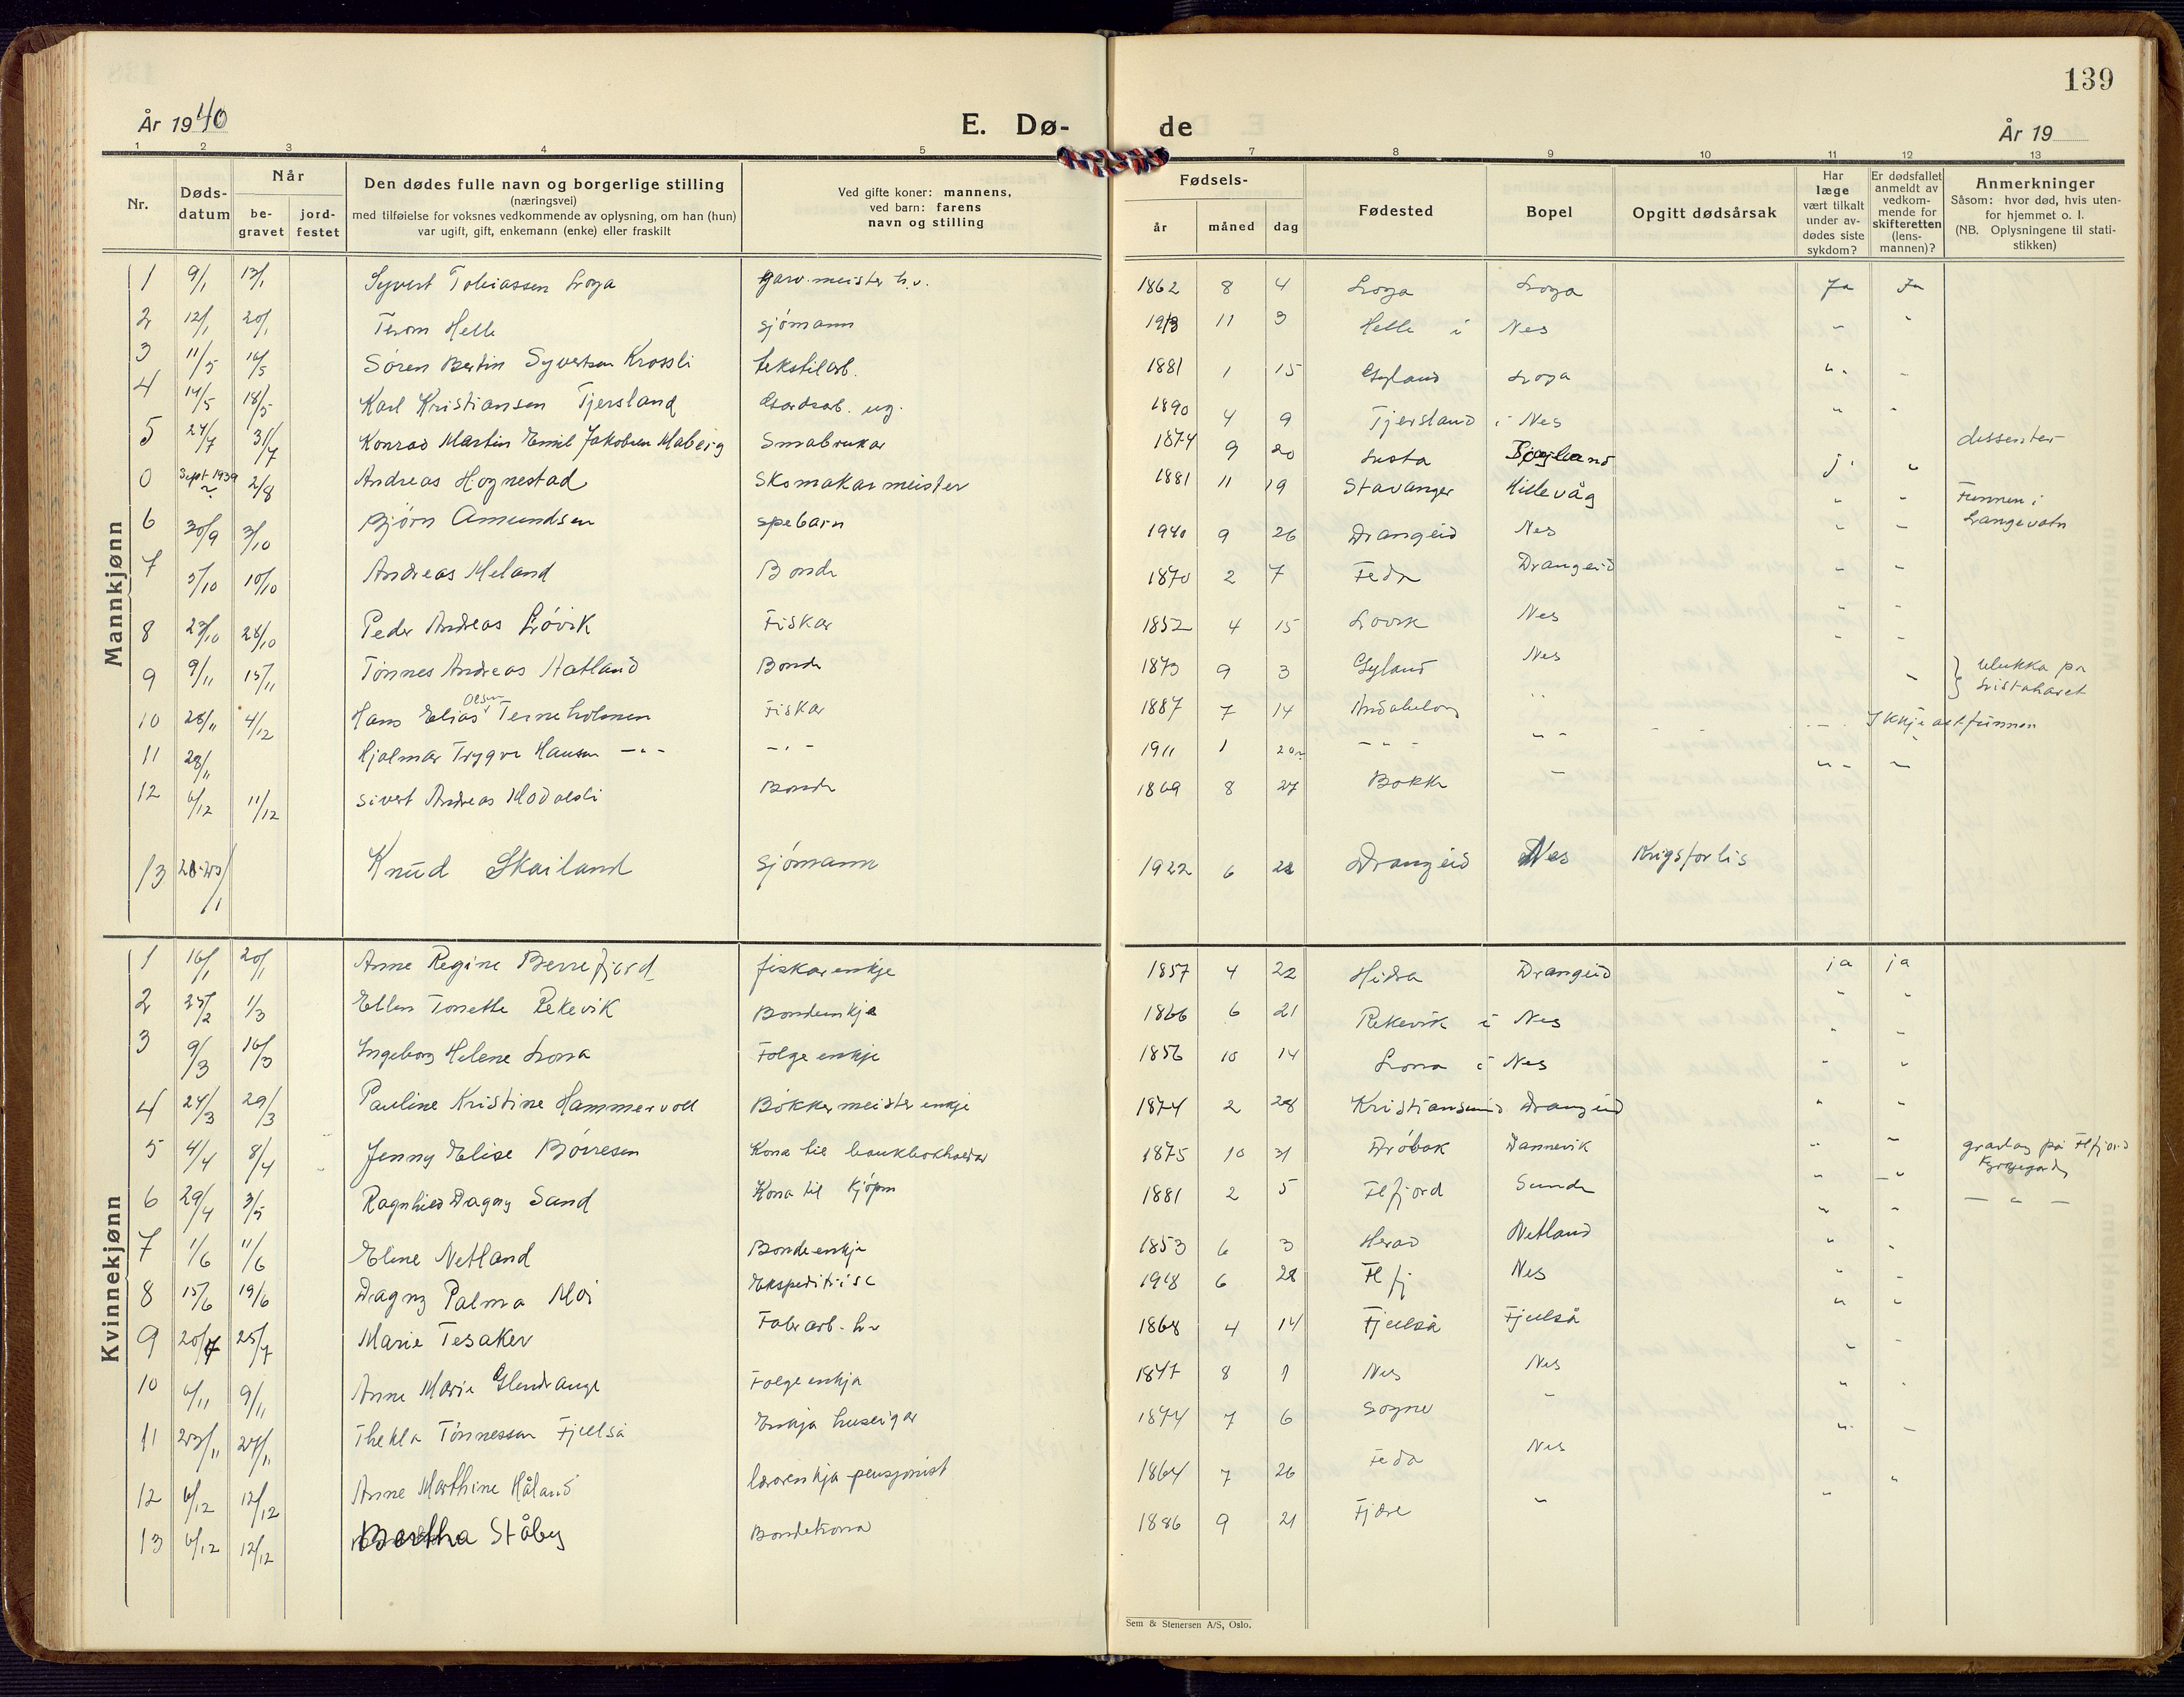 139
År 1940
E. Dø-
de
År 19
1 2 3 4 5 7 8 9 10 11 12 13
Nr.
Døds-
datum
Når
be-
gravet
jord-
festet
Den dødes fulle navn og borgerlige stilling
(næringsvei)
med tilføielse for voksnes vedkommende av oplysning, om han (hun)
var ugift, gift, enkemann (enke) eller fraskilt
Ved gifte koner: mannens,
ved barn: farens
navn og stilling
Fødsels-
år måned dag
Fødested
Bopel
Opgitt dødsårsak
Har
læge
vært tilkalt
under av-
dødes siste
sykdom?
Er dødsfallet
anmeldt av
vedkom-
mende for
skifteretten
(lens-
mannen)?
Anmerkninger
Såsom: hvor død, hvis uten-
for hjemmet o. l.
(NB. Oplysningene til stati-
stikken)
Mannkjønn
1 9/1 13/1 Syvert Tobiassen Loga garv.meister h.v. 1862 8 4 Loga Loga Ja Ja
2 12/1 20/1 Helle sjömann 1913 11 3 Helle i Nes " "
3 11/5 16/5 Søren Bertin Syvertsen Krossli tekstilarb. 1881 1 15 Gyland Loga " "
4 14/5 18/5 Karl Kristiansen Tjersland Gardsarb. ug. 1890 4 9 Tjersland i Nes " "
5 24/7 31/7 Konrad Martin Emil Jakobsen Maberg Småbrukar 1874 9 20 Lista j. " dissenter
0 Sept 1939 2/8 Andreas Hognestad Skomakarmeister 1881 11 19 Stavanger Hillevåg " " Funnen i
Langevatn
6 30/9 3/10 Bjørn Amundsen spebarn 1940 9 26 Drangeid Nes " "
7 5/10 10/10 Andreas Meland Bonde 1870 2 7 Feda Drangeid " "
8 23/10 28/10 Peder Andreas Lövik Fiskar 1852 4 15 Lovik Nes " "
9 9/11 15/11 Tønnes Andreas Hatland Bonde 1873 9 3 Gyland Nes " ulukka på
Listahavet
10 28/11 4/12 Hans Elias Olsen Terneholmen Fiskar 1887 7 14 Andabeløy "
11 28/11 Hjalmar Trygve Hansen - " - - " - 1911 1 20 - " - " " Ikkje attfunnen
12 6/12 11/12 Sivert Andreas Modalsli Bonde 1869 8 27 Bakke " " "
13 20-23/1 Knud Skailand sjömann 1922 6 22 Drangeid Nes Krigsforlis
Kvinnekjønn
1 16/1 20/1 Anne Regine Berrefjord fiskarenkje 1857 4 22 Hidra Drangeid ja ja
2 25/2 1/3 Ellen Tonette Rekevik Bondeenkje 1866 6 21 Rekevik i Nes " "
3 9/3 16/3 Ingeborg Helene Lona Folgeenkje 1856 10 14 Lona i Nes " "
4 24/3 29/3 Pauline Kristine Hammervoll Bøkkermeisterenkje 1874 2 28 Kristiansund Drangeid " "
5 4/4 8/4 Jenny Elise Börresen Kona til bankbokhaldar 1875 10 31 Dröbak Dannevik " " gravlag på Flfjord
Kyrkjegard
6 29/4 3/5 Ragnhild Dagny Sand Kona til kjöpm 1881 2 5 Flfjord Sunde " " - " -
7 1/6 11/6 Eline Netland Bondeenkje 1853 6 3 Herad Netland " "
8 15/6 19/6 Dagny Palma Moi Ekspeditrise 1918 6 28 Fl fj Nes " "
9 20/7 25/7 Marie Tesaker Fabr arb. h.v 1868 4 14 Fjellså Fjellså " "
10 6/11 9/11 Anne Marie Glendrange Folgeenkja 1847 8 1 Nes Nes " "
11 23/11 27/11 Thekla Tönnessen Fjellså Enkja huseigar 1874 7 6 Sogne " " "
12 6/12 12/12 Anne Marthine Håland lærarenkja pensjonist 1864 7 26 Feda Nes "
13 6/12 12/12 Bertha Ståby Bondekona 1886 9 21 Fjære " "
Sem & Stenersen A/S, Oslo.